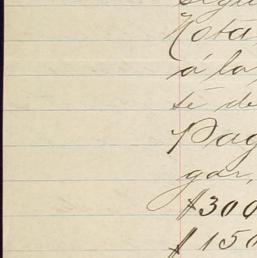 segu
Nota,
á la
sé de
Pag
gar,
$300
$150